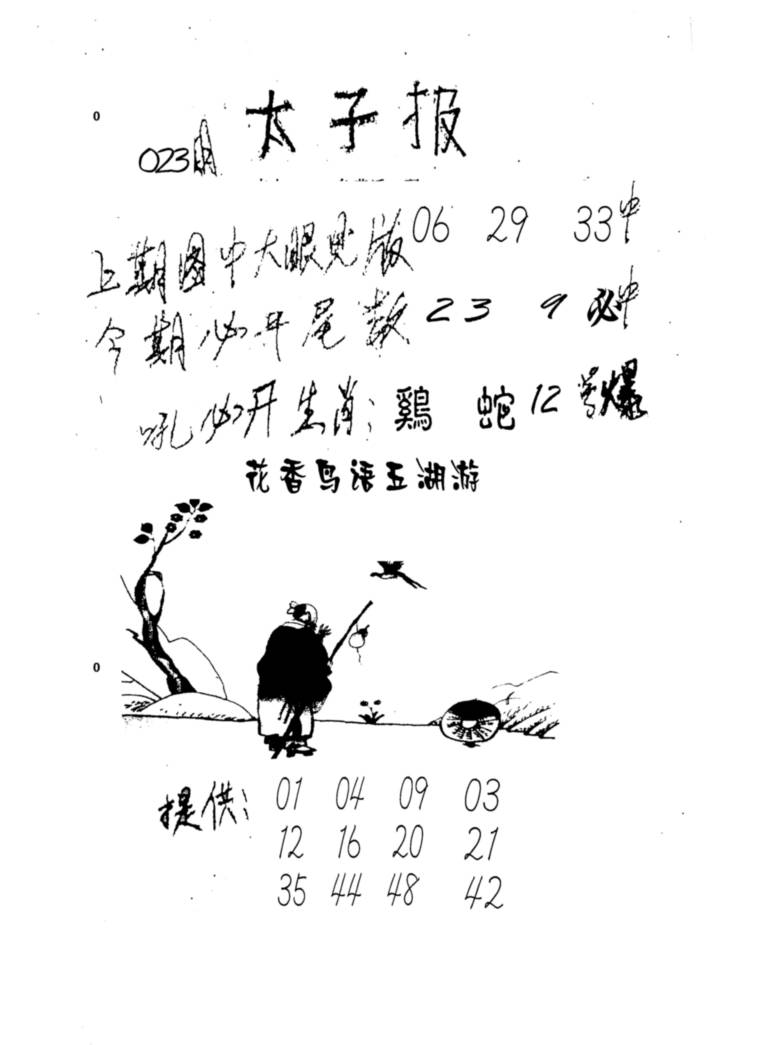 太子报
023期
上期图中大眼见版 06 29 33中
今期必开尾数 23 9 必中
吼必开生肖: 鷄 蛇 12号爆
花香鸟语五湖游
提供: 01 04 09 03
12 16 20 21
35 44 48 42
0
0